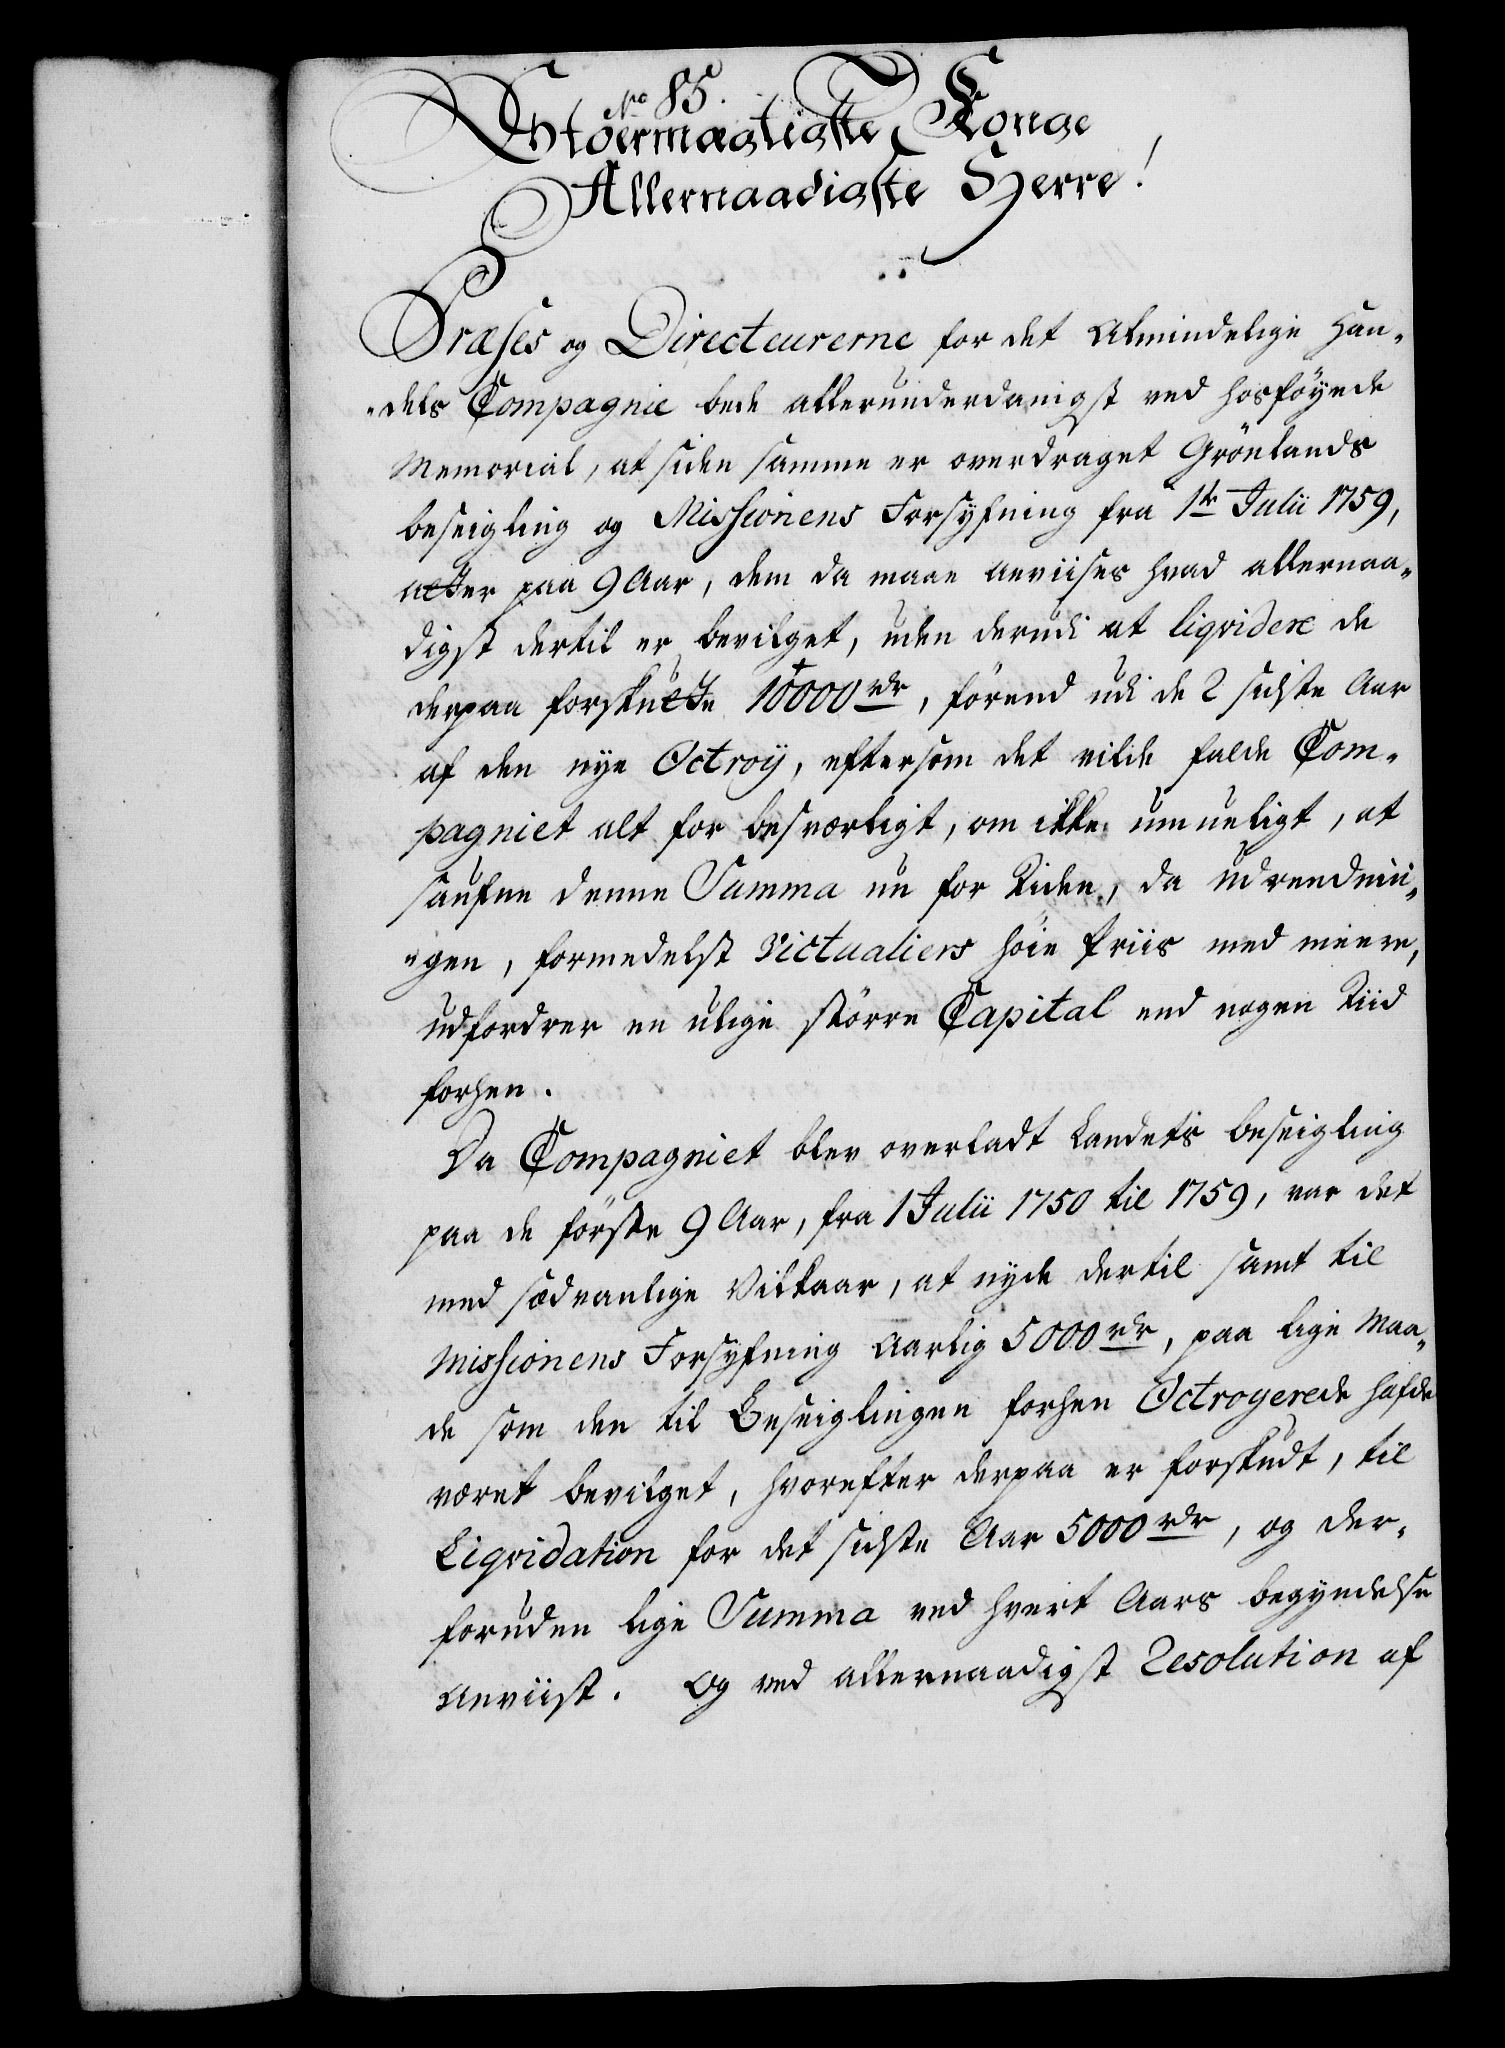 No 85.
Stoermægtigste Konge
Allernaadigste Herre!
Præses og Directeurerne for det Almindelige Han-
-dels Compagnie bede allerunderdanigst ved hosföyede
Memorial, at siden samme er overdraget Grönlands
beseigling og Missionens Forsyfning fra 1te Julii 1759,
atter paa 9 Aar, dem da maae anviises hvad allernaa-
digst dertil er bevilget, uden derudi at liqvidere de
derpaa forskutte 10000 rdr, förend udi de 2 sidste Aar
af den nye Octroij, eftersom det vilde falde Com-
pagniet alt for besværligt, om ikke umueligt, at
saufne denne Summa nu for Tiden, da udrednin-
-gen, formedelst Victualiers höie Priis med meere,
udfordrer en ulige större Capital end nogen Tiid
forhen.
Da Compagniet blev overladt Landets beseigling
paa de förste 9 Aar, fra 1 Julii 1750 til 1759, var det
med sædvanlige Vilkaar, at nyde dertil samt til
Missionens Forsyfning Aarlig 5000 rdr, paa lige Maa-
de som den til Beseiglingen forhen Octroyerede hafde
været bevilget, hvorefter derpaa er forskudt, til
Liqvidation for det sidste Aar 5000 rdr, og der-
foruden lige Summa ved hvert Aars begyndelse
Anviist. Og ved allernaadigst Resolution af